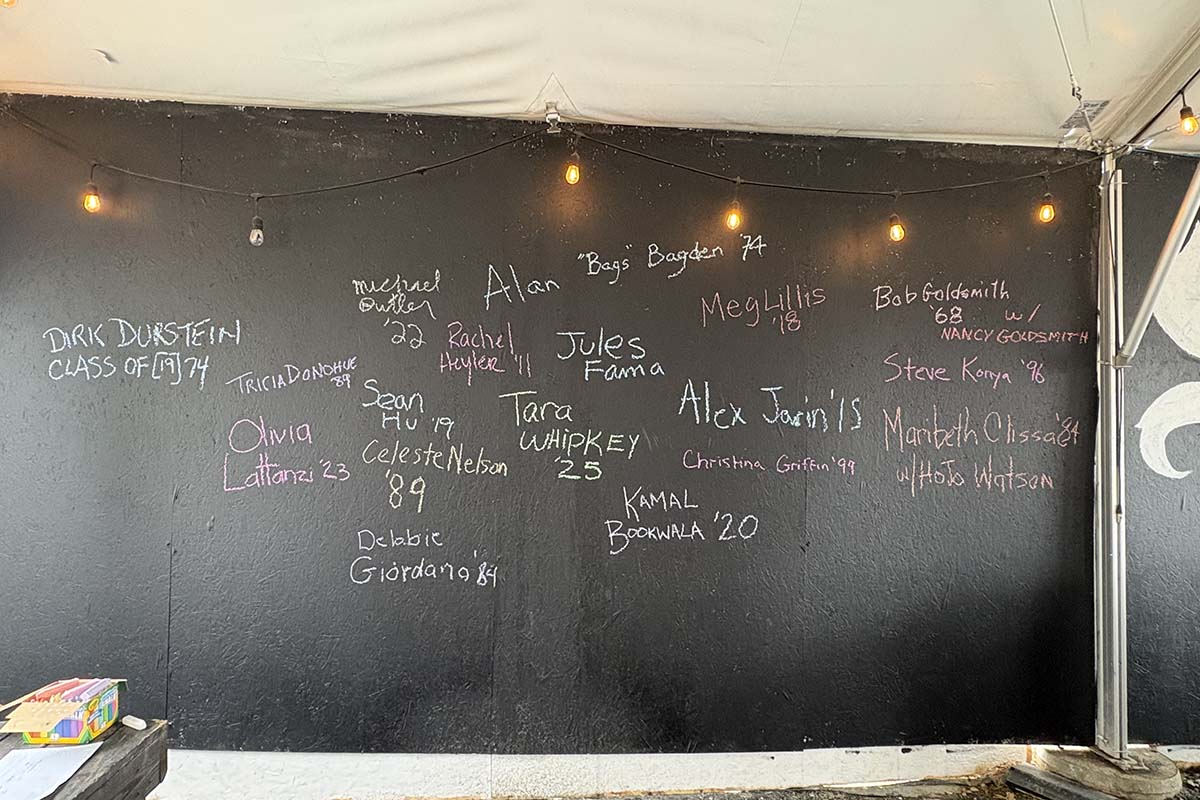 DIRK DURSTEIN
CLASS OF [19]74
Michael
Butler
'22
Alan "Bags" Bagden '74
Rachel
Heyler '11
Jules
Fama
Meg Lillis
'18
Bob Goldsmith
'68 w/
NANCY GOLDSMITH
TRICIA DONOHUE
89
Sean
Hu '19
Tara
WHIPKEY
'25
Alex Jarin '15
Steve Konya '96
Olivia
Lattanzi '23
Celeste Nelson
'89
Christina Griffin '99
Maribeth Clissa '84
w/ HoJo Watson
KAMAL
BOOKWALA '20
Debbie
Giordano '84